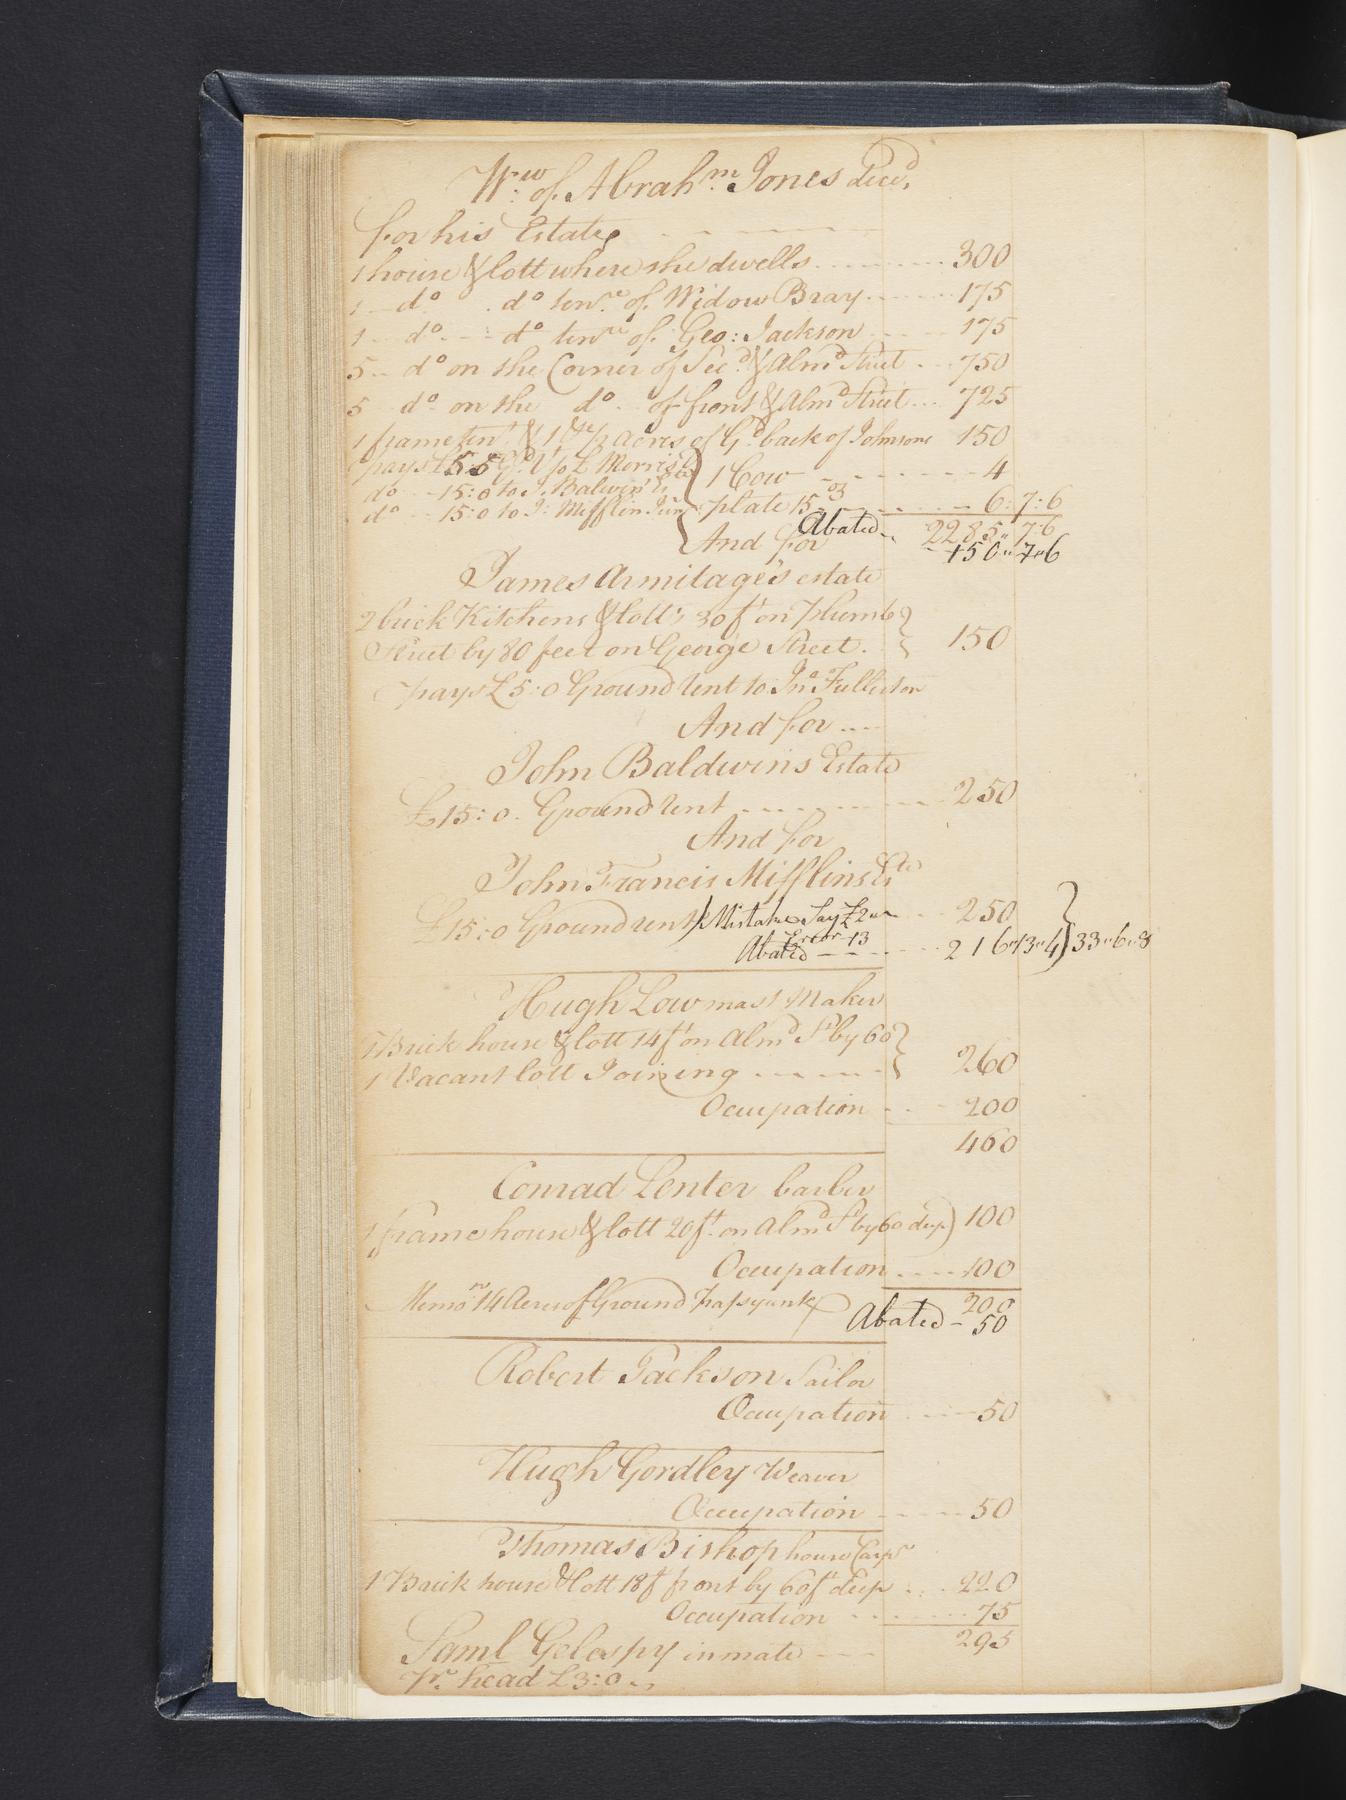 Wid:w of Abrahm. Jones Decd.
for his Estate
1 house & lott where she dwells 300
1 do do tenre of Widow Bray 175
1 do do tenre of Geo: Jackson 175
5 do on the Corner of Secd & Almd Street 750
5 do on the do of front & Almd Street 725
1 frame tent & 1 acres of Gd back of Johnsons 150
pays £5.5 Gd to L Morris
1 Cow 4
do 15:0 to J. Baldwin
plate 15 oz 6:7:6
do 15:0 to J: Mifflin Junr
Abated 2285"7:6
And for 150"7"6
James Armitage's estate
2 brick Kitchens & lotts 30ft on Plumb
Street by 80 feet on George Street. 150
pays £5:0 Ground Rent to Jno Fullerton
And for
John Baldwins Estate
£15:0. Ground Rent 250
And for
John Francis Mifflins Este
£15:0 Ground rent Mistake Say £2 250
Error 13
Abated 216"13"4 33"6"8
Hugh Low mast Maker
1 Brick house & lott 14ft on Almd St by 60
1 Vacant lott Joining 260
Occupation 200
460
Conrad Lenter barber
1 frame house & lott 20ft. on Almd St by 60 deep 100
Occupation 100
Memon 14 Acres of Ground Passyunk 200
Abated 50
Robert Jackson Sailor
Occupation 50
Hugh Gordley Weaver
Occupation 50
Thomas Bishop house Carpr
1 Brick house & lott 18ft front by 60ft deep 220
Occupation 75
295
Saml Gelespy inmate
Pr. head £3:0